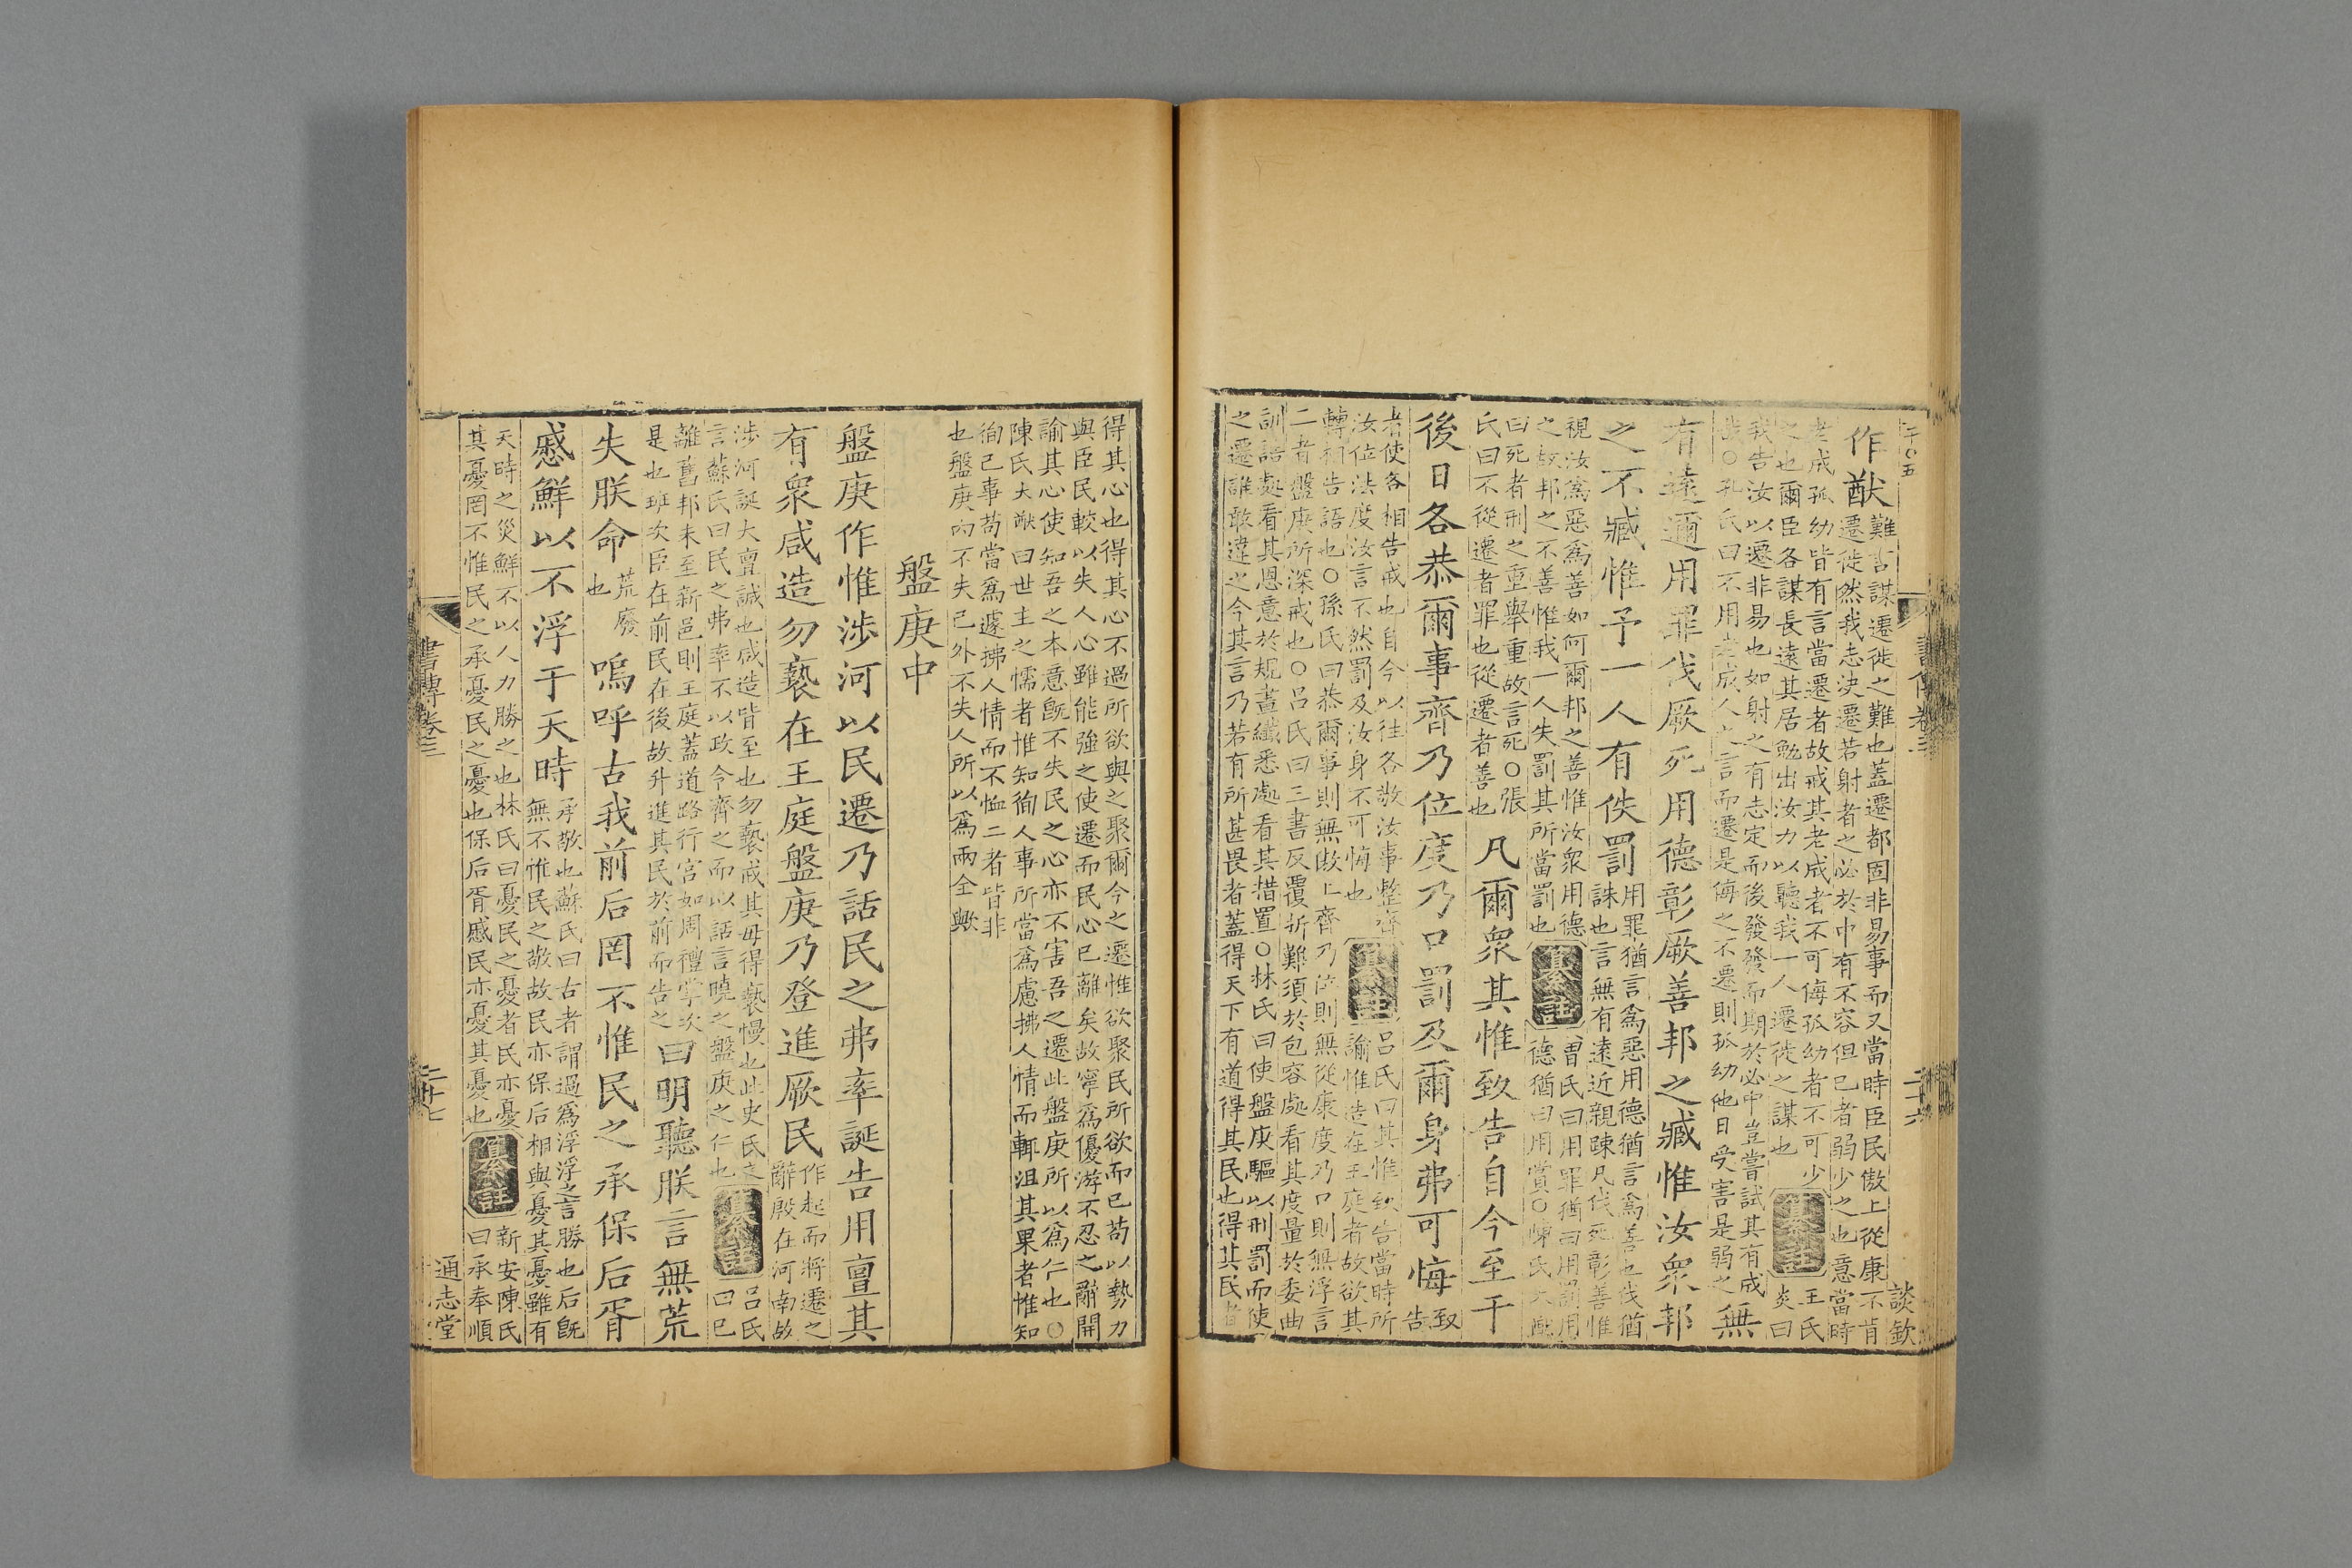 作猷
難言謀遷徙之難也蓋遷都固非易事而又當時臣民傲上從康不肯
遷徙然我志決遷若射者之必於中有不容但已者弱少之也意當時
老成孤幼皆有言當遷者故戒其老成者不可侮孤幼者不可少
之也爾臣各謀長遠其居勉出汝力以聽我一人遷徙之謀也
纂註
王氏
炎曰
我告汝以遷非易也如射之有志定而後發發而期於必中豈嘗試其有成
哉○孔氏曰不用老成人之言而遷是侮之不遷則孤幼他日受害是弱之
無
有遠邇用罪伐厥死用德彰厥善邦之臧惟汝衆邦
之不臧惟予一人有佚罰
用罪猶言爲惡用德猶言爲善也伐猶
誅也言無有遠近親疎凡伐死彰善惟
視汝爲惡爲善如何爾邦之善惟汝衆用德
之故邦之不善惟我一人失罰其所當罰也
纂註
曽氏曰用罪猶曰用罰用
德猶曰用賞○陳氏大猷
曰死者刑之重舉重故言死○張
氏曰不從遷者罪也從遷者善也
凡爾衆其惟致告自今至于
後日各恭爾事齊乃位度乃口罰及爾身弗可悔
致
告
者使各相告戒也自今以往各敬汝事整齊
汝位法度汝言不然罰及汝身不可悔也
纂註
呂氏曰其惟致告當時所
諭惟造在王庭者故欲其
轉相告語也○孫氏曰恭爾事則無傲上齊乃位則無從康度乃口則無浮言
二者盤庚所深戒也○呂氏曰三書反覆折難須於包容處看其度量於委曲
訓語處看其恩意於規畫纖悉處看其措置○林氏曰使盤庚驅以刑罰而使
之遷誰敢違之今其言乃若有所甚畏者蓋得天下有道得其民也得其民者
談欽
書傳卷三
二十六
得其心也得其心不過所欲與之聚爾今之遷惟欲聚民所欲而已苟以勢力
與臣民較以失人心雖能強之使遷而民心已離矣故寧爲優游不忍之辭開
諭其心使知吾之本意旣不失民之心亦不害吾之遷此盤庚所以爲仁也○
陳氏大猷曰世主之懦者惟知徇人事所當爲慮拂人情而輒沮其果者惟知
徇己事苟當爲遽拂人情而不恤二者皆非
也盤庚內不失己外不失人所以爲兩全歟
盤庚中
盤庚作惟涉河以民遷乃話民之弗率誕告用亶其
有衆咸造勿褻在王庭盤庚乃登進厥民
作起而將遷之
辭殷在河南故
涉河誕大亶誠也咸造皆至也勿褻戒其毋得褻慢也此史氏之
言蘇氏曰民之弗率不以政令齊之而以話言曉之盤庚之仁也
纂註
呂氏
曰已
離舊邦未至新邑則王庭蓋道路行宮如周禮掌次
是也班次臣在前民在後故升進其民於前而告之
曰明聽朕言無荒
失朕命
荒廢
也
嗚呼古我前后罔不惟民之承保后胥
慼鮮以不浮于天時
承敬也蘇氏曰古者謂過爲浮浮之言勝也后旣
無不惟民之敬故民亦保后相與憂其憂雖有
天時之災鮮不以人力勝之也林氏曰憂民之憂者民亦憂
其憂罔不惟民之承憂民之憂也保后胥慼民亦憂其憂也
纂註
新安陳氏
曰承奉順
書傳卷三
二十七
通志堂